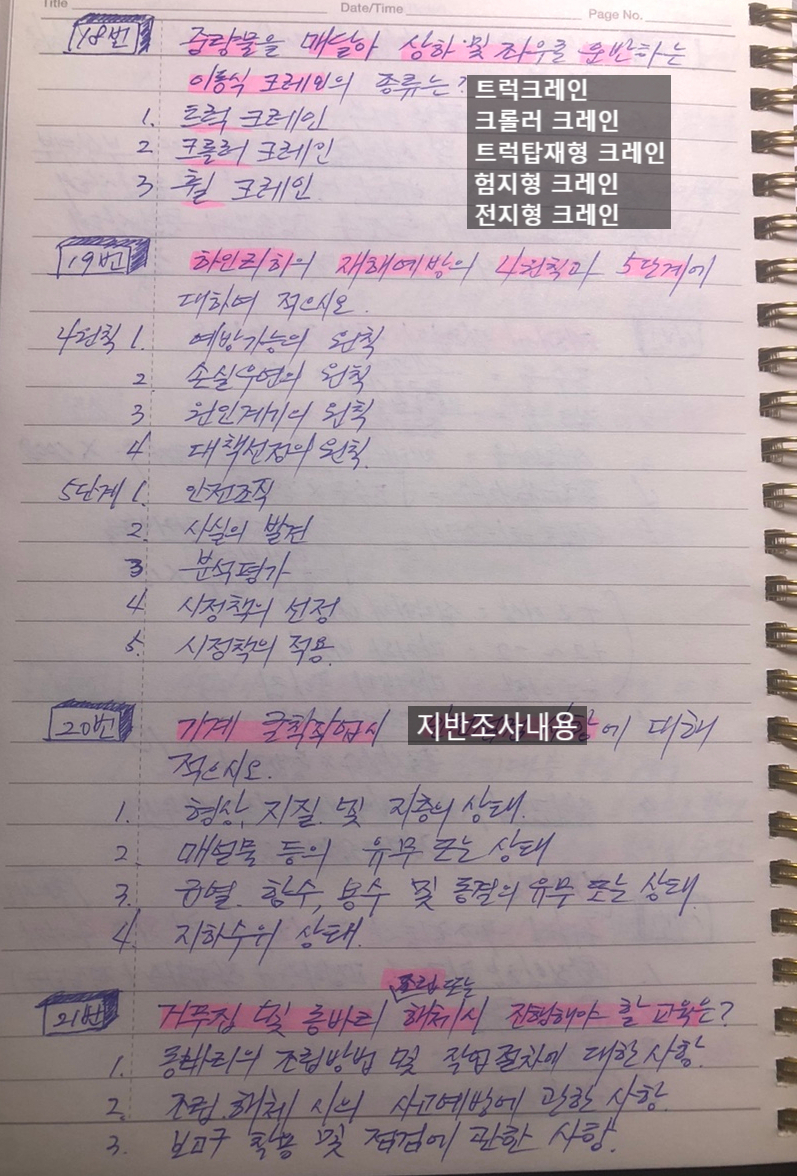 Title
Date/Time
Page No.
18번 중량물을 매달아 상하 및 좌우를 운반하는
이동식 크레인의 종류는?
트럭크레인
크롤러 크레인
트럭탑재형 크레인
험지형 크레인
전지형 크레인
1. 트럭 크레인
2. 크롤러 크레인
3 휠 크레인
19번 하인리히의 재해예방의 4원칙과 5단계에
대하여 적으시오.
4원칙 1. 예방가능의 원칙
2. 손실우연의 원칙
3 원인계기의 원칙
4 대책선정의 원칙.
5단계 1. 안전조직
2. 사실의 발견
3 분석평가
4 시정책의 선정
5. 시정책의 적용.
20번 기계 굴착작업시 지반조사내용에 대해
적으시오.
1. 형상, 지질. 및 지층의 상태.
2. 매설물 등의 유무 또는 상태
3. 균열. 함수, 용수 및 동결의 유무 또는 상태.
4. 지하수위 상태.
조립 또는
21번 거푸집 및 동바리 해체시 진행해야 할 교육은?
1. 동바리의 조립방법 및 작업절차에 대한 사항.
2. 조립 해체 시의 사고예방에 관한 사항.
3. 보호구 착용 및 점검에 관한 사항.